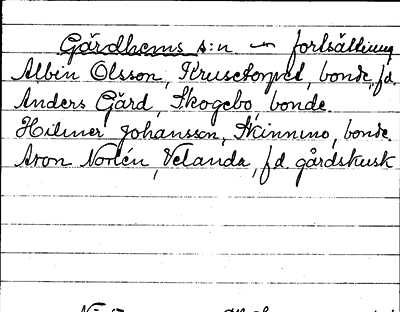 Gärdhems s:n — fortsättning
Albin Olsson, Krusetorpet, bonde, fd.
Anders Gärd, Skogebo, bonde.
Hilmer Johansson, Skinnmo, bonde.
Aron Norlén, Velanda, fd gårdskusk